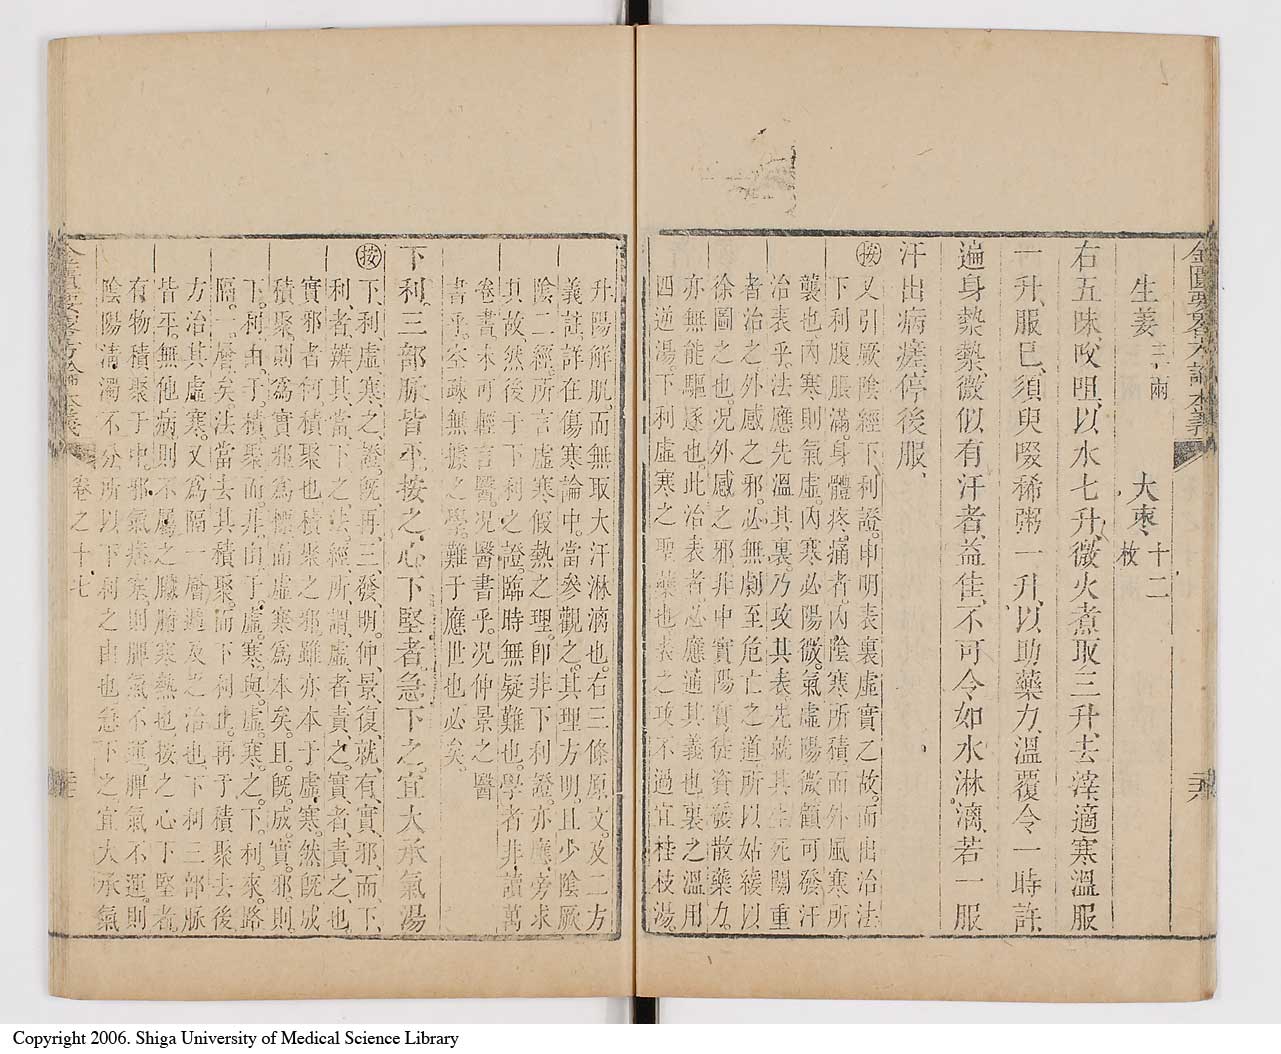 金匱要畧方論本義
生姜三兩　大棗十二枚
右五味㕮咀以水七升微火煮取三升去滓適寒溫服
一升服已須臾啜稀粥一升以助藥力溫覆令一時許
遍身漐漐微似有汗者益佳不可令如水淋漓若一服
汗出病瘥停後服
按又引厥陰經下利證申明表裏虛實之故而出治法
下利腹脹滿身體疼痛者內陰寒所積而外風寒所
襲也內寒則氣虛內寒必陽微氣虛陽微顧可發汗
治表乎法應先溫其裏乃攻其表先就其生死關重
者治之外感之邪必無劇至危亡之道所以姑緩以
徐圖之也况外感之邪非中實陽實徒資發散藥力
亦無能驅逐也此治表者必應通其義也裏之溫用
四逆湯下利虛寒之聖藥也表之攻不過宜桂枝湯
升陽解肌而無取大汗淋漓也右三條原文及二方
義註詳在傷寒論中當參觀之其理方明且少陰厥
陰二經所言虛寒假熱之理即非下利證亦應旁求
其故然後于下利之證臨時無疑難也學者非讀萬
卷書未可輕言醫况醫書乎况仲景之醫
書乎空疎無據之學難于應世也必矣
下利三部脈皆平按之心下堅者急下之宜大承氣湯
按下利虛寒之證既再三發明仲景復就有實邪而下
利者辨其當下之法經所謂虛者責之實者責之也
實邪者何積聚也積聚之邪雖亦本于虛寒然既成
積聚則爲實邪爲標而虛寒爲本矣且既成實邪則
下利由于積聚而非由于虛寒與虛寒之下利來路
隔一層矣法當去其積聚而下利止再予積聚去後
方治其虛寒又爲隔一層遞及之治也下利三部脈
皆平無他病則不屬之臟腑寒熱也按之心下堅者
有物積聚于中邪氣痞塞則脾氣不運脾氣不運則
陰陽淸濁不分所以下利之由也急下之宜大承氣
金匱要畧方論本義
卷之十七